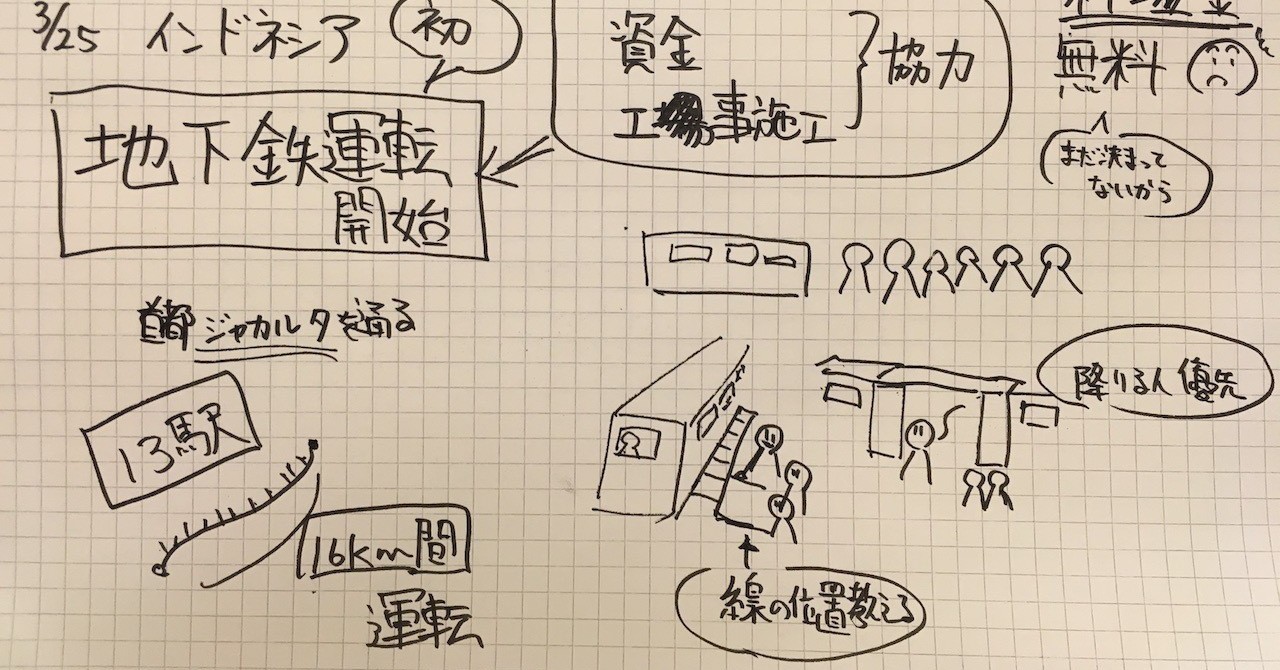 3/25 インドネシア
初
地下鉄運転
開始
資金
工事施工
協力
無料
まだ決まって
ないから
首都ジャカルタを通る
13駅
16km間
運転
降りる人優先
線の位置教える